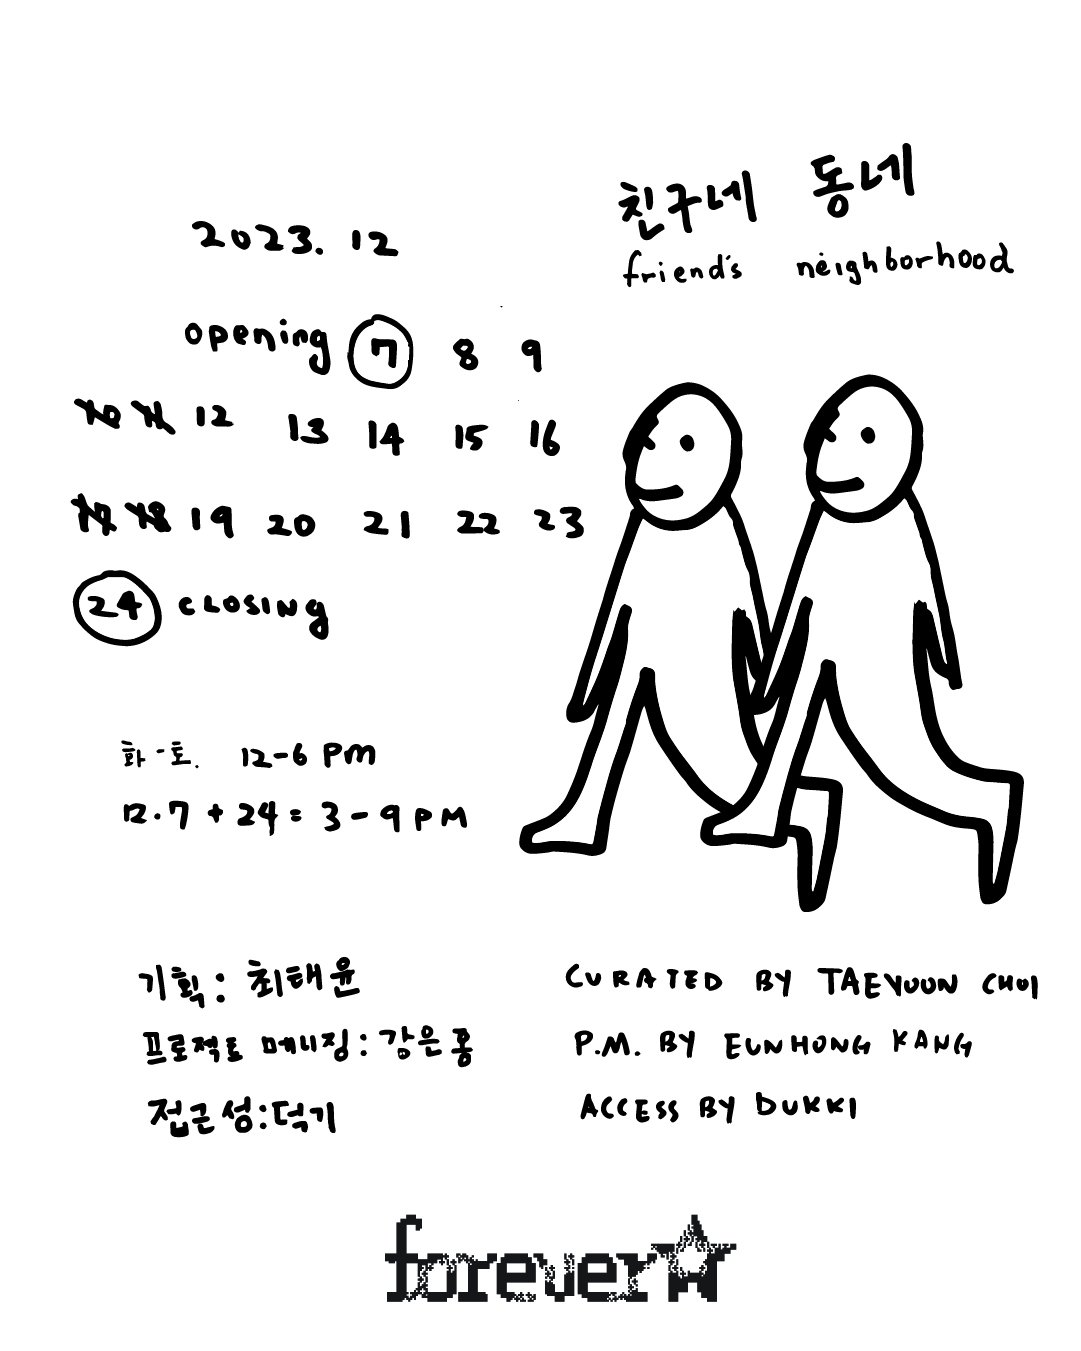 친구네 동네
friend's neighborhood
2023. 12
opening 7 8 9
10 11 12 13 14 15 16
17 18 19 20 21 22 23
24 CLOSING
화-토. 12-6 PM
12.7 + 24 = 3 - 9 PM
기획: 최태윤
프로젝트 매니징: 강은홍
접근성: 덕기
CURATED BY TAEYOON CHOI
P.M. BY EUNHONG KANG
ACCESS BY DUKKI
forever☆